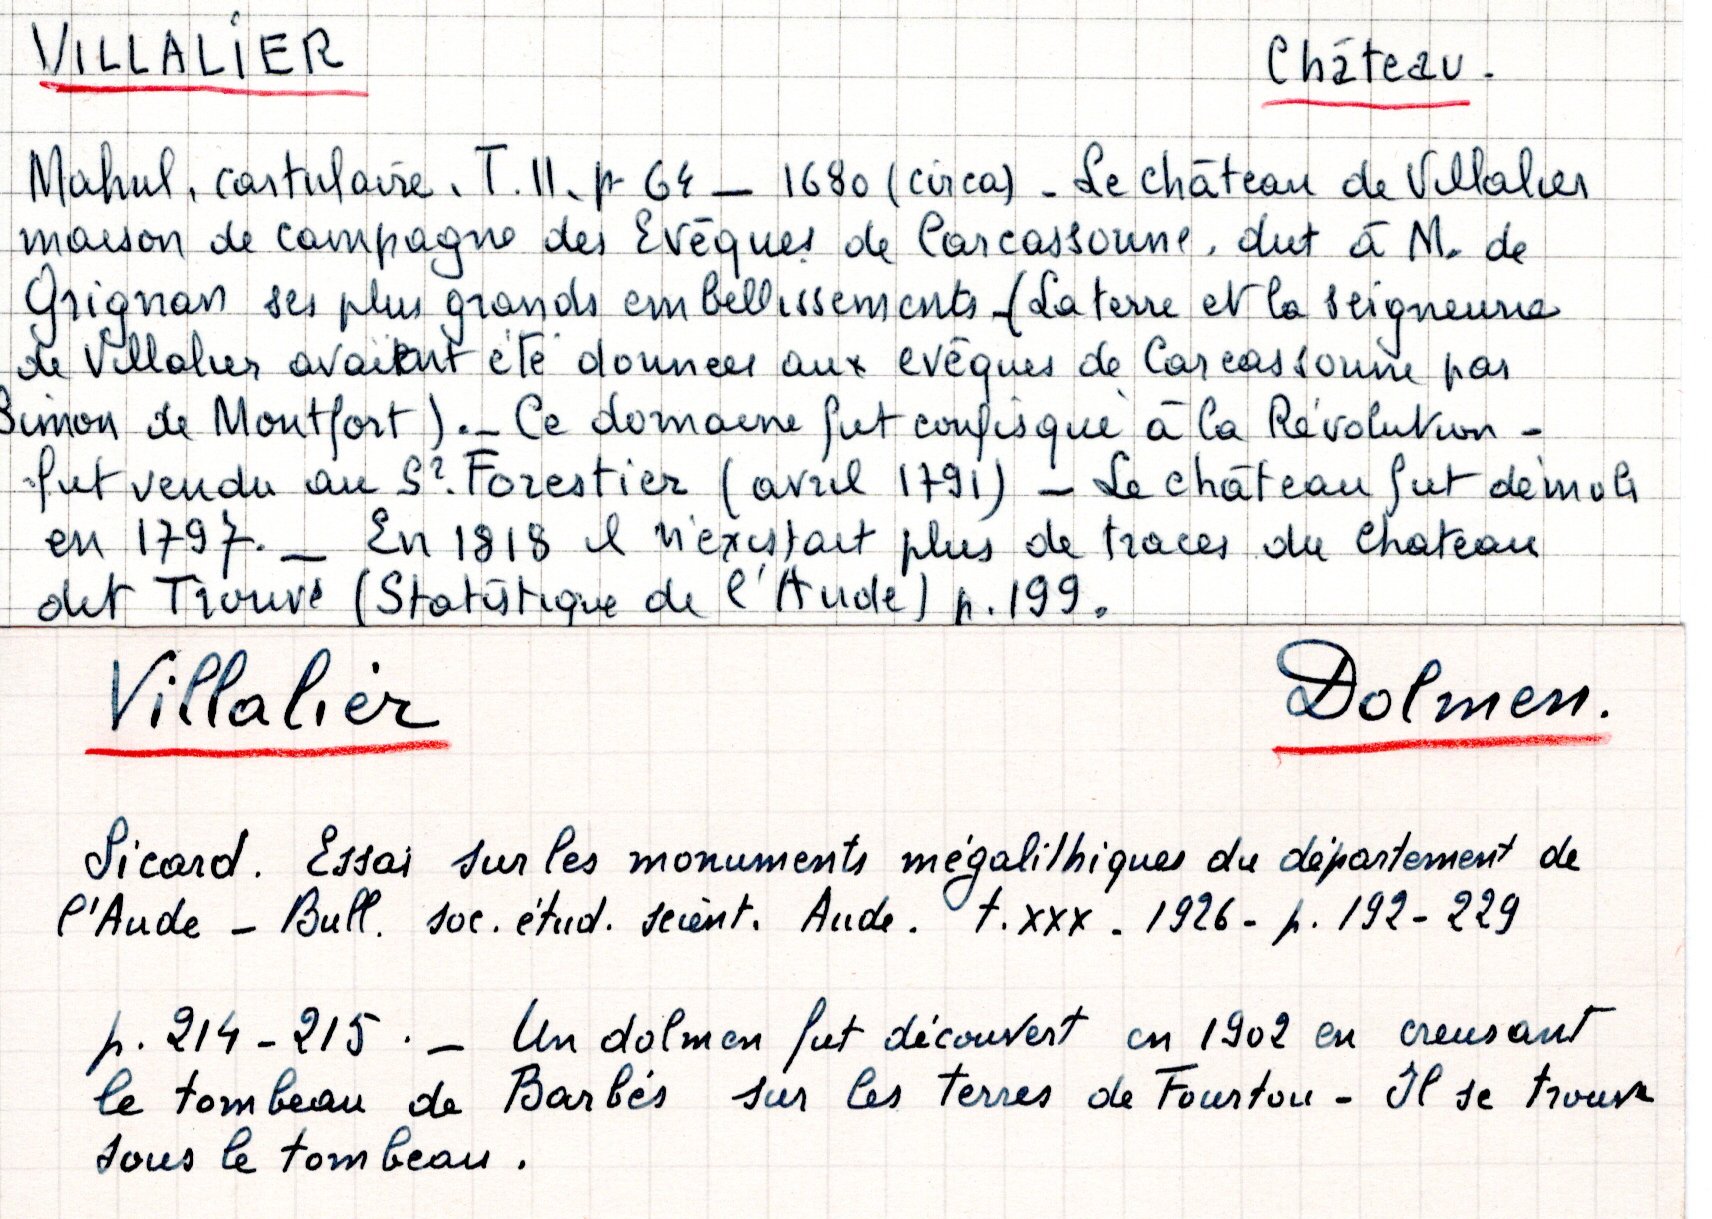 VILLALIER Château.
Mahul, cartulaire. T. II. p 64 — 1680 (circa) - Le château de Villalier
maison de campagne des Evêques de Carcassonne, dut à M. de
Grignan ses plus grands embellissements - (La terre et la seigneurie
de Villalier avaient été données aux evêques de Carcassonne par
Simon de Montfort). — Ce domaine fut confisqué à la Révolution -
fut vendu au Sr. Forestier (avril 1791) — Le château fut démoli
en 1797. — En 1818 il n'existait plus de traces du chateau
dit Trouvé (Statistique de l'Aude) p. 199.
Villalier Dolmen.
Sicard. Essai sur les monuments mégalithiques du département de
l'Aude - Bull. soc. étud. scient. Aude. t. xxx - 1926 - p. 192 - 229
p. 214 - 215 . — Un dolmen fut découvert en 1902 en creusant
le tombeau de Barbés sur les terres de Fourtou - Il se trouve
sous le tombeau.